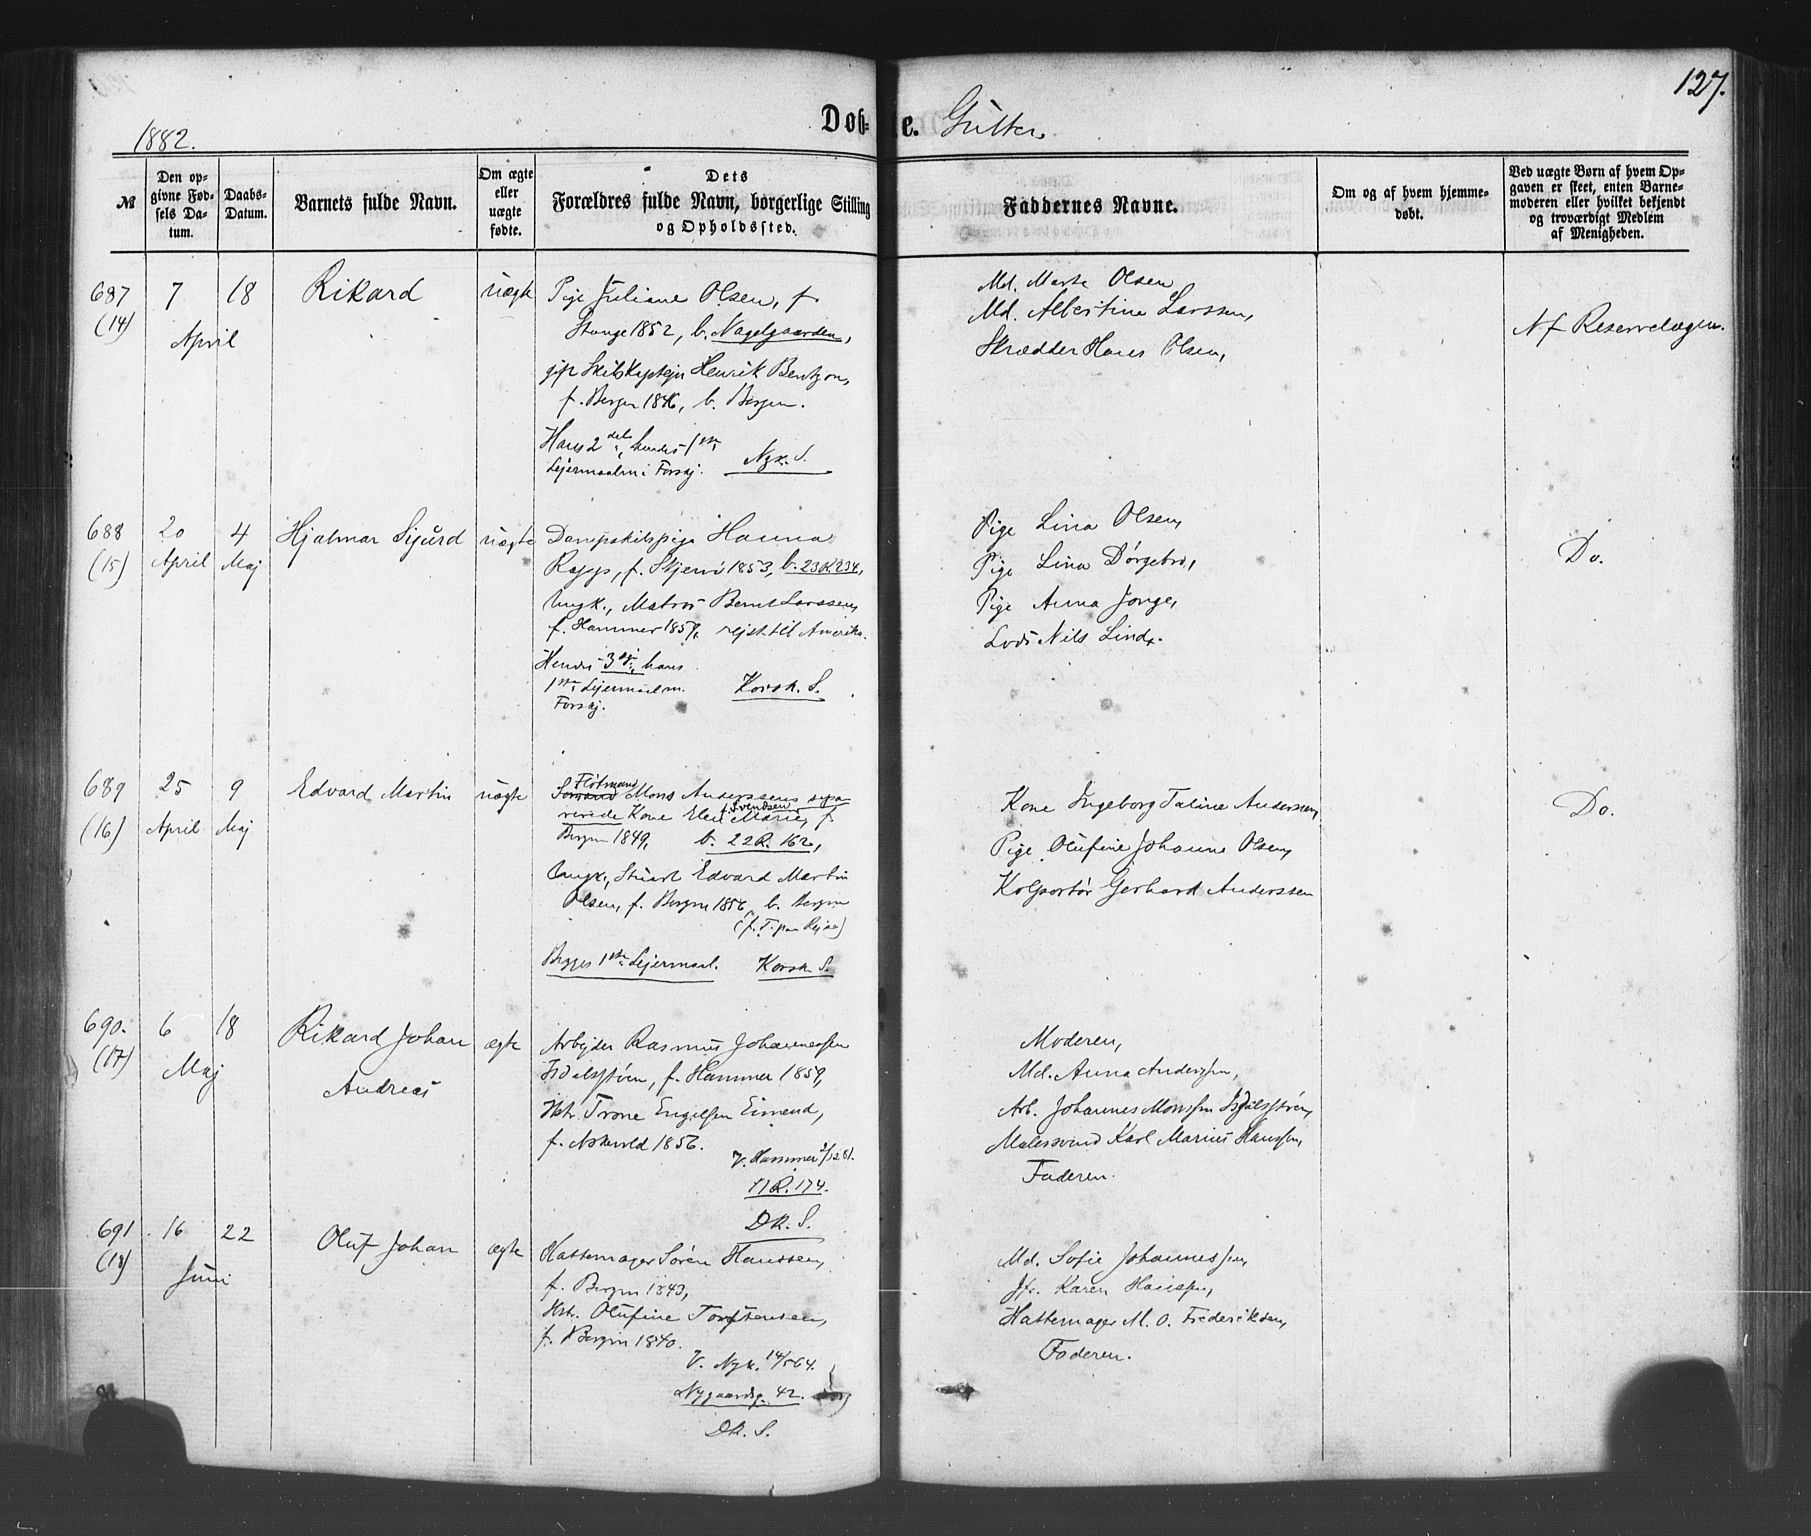 127.
1882.
Døbte. Gutter.
№
Den opgivne Fødsels Datum.
Daabs-Datum.
Barnets fulde Navn.
Om ægte eller uægte fødte.
Dets Forældres fulde Navn, borgerlige Stilling og Opholdssted.
Faddernes Navne.
Om og af hvem hjemmedøbt.
Ved uægte Børn af hvem Opgaven er skeet, enten Barnemoderen eller hvilket bekjendt og troværdigt Medlem af Menigheden.
687
(14)
7 18
April
Rikard
uægte
Pige Juliane Olsen, f.
Stange 1852, b. Nagelgaarden,
gift Skibskaptejn Henrik Bentzon,
f. Bergen 1846, b. Bergen.
Hans 2 det, hendes 1ste
Lejermaal m. Forskj.
Nyk. S.
Md. Marte Olsen
Md. Albertine Larssen,
Skrædder Hans Olsen,
Nf Reservelægen.
688
(15)
20 April
4 Maj
Hjalmar Sigurd
uægte
Dampskibspige Hanna
f. Skjervö 1853, b. 23R.234,
Ungk., Matros Bernt Larssen,
f. Hammer 1857, rejst til Amerika.
Hendes 3die, hans
1ste Lejermaal m.
Forskj.
Korsk. S.
Pige Lina Olsen,
Pige Lina
Pige Anna
Lods Nils Lind.
Do.
689
(16)
25 April
9 Maj
Edvard Martin
uægte
Flötmand
Mons Anderssens sepa-
rerede Kone Elen Marie f. Svendsen, f.
Bergen 1849, b. 22R. 162,
Ungk., Stuert Edvard Martin
Olsen, f. Bergen 1856, b. Bergen
(f. T. paa Rejse)
Begges 1ste Lejermaal. Korsk. S.
Kone Ingeborg Taline Anderssen,
Pige Olufine Johanne Olsen,
Kolportör Gerhard Anderssen
Do.
690.
(17)
6 18
Maj
Rikard Johan
Andreas
ægte
Arbejder Rasmus Johannessen
f. Hammer 1859,
Hst. Trone Engelsen Eimend,
f. Askevold 1856.
V. Hammer 1/12 81.
11R. 174.
DK. S.
Moderen,
Md. Anna Anderssen,
Arb. Johannes Monssen
Malersvend Karl Marius Hanssen,
Faderen.
691
(18)
16 22
Juni
Oluf Johan
ægte
Hattemager Sören Hanssen,
f. Bergen 1843,
Hst. Olufine Torstensen,
f. Bergen 1840.
V. Nyk. 14/5 64.
Nygaardsg. 42.
DK. S.
Md. Sofie Johannessen,
Jfr. Karen Hanssen,
Hattemager M. O. Frederiksen,
Faderen.